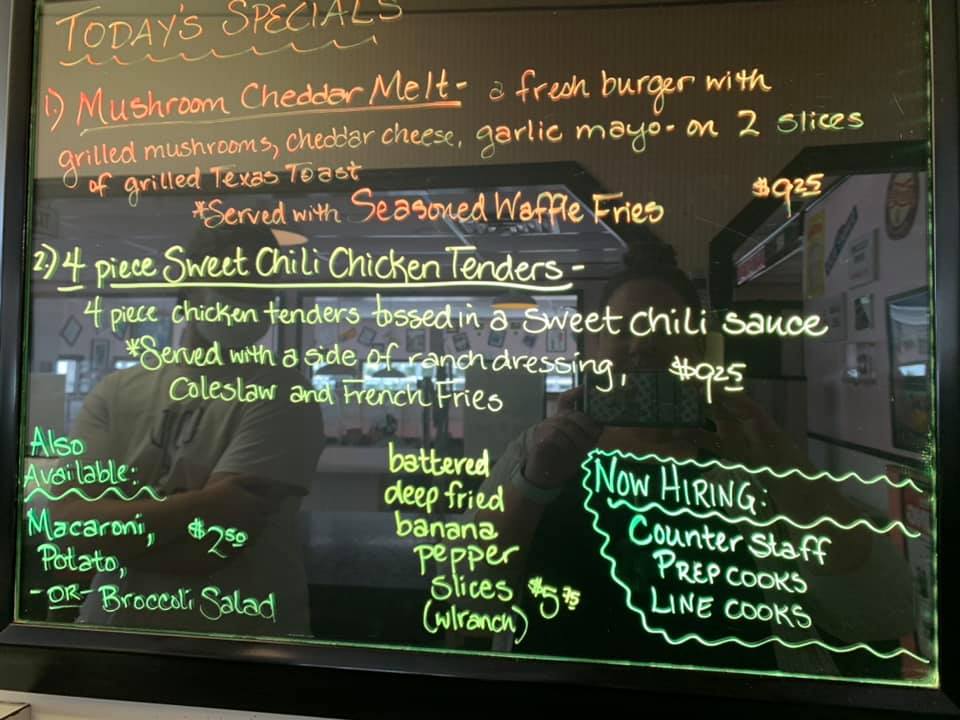 TODAY'S SPECIALS
1.) Mushroom Cheddar Melt - a fresh burger with
grilled mushrooms, cheddar cheese, garlic mayo - on 2 slices
of grilled Texas Toast $9.25
*Served with Seasoned Waffle Fries
2.) 4 piece Sweet Chili Chicken Tenders -
4 piece chicken tenders tossed in a sweet chili sauce
*Served with a side of ranch dressing, $9.25
Coleslaw and French Fries
Also
Available:
Macaroni, $2.50
Potato,
-OR- Broccoli Salad
battered
deep fried
banana
pepper
slices $5.75
(w/ranch)
NOW HIRING:
Counter Staff
PREP COOKS
LINE COOKS